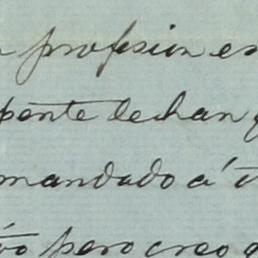 profesion es
pente lechan
mandado á
pero creo